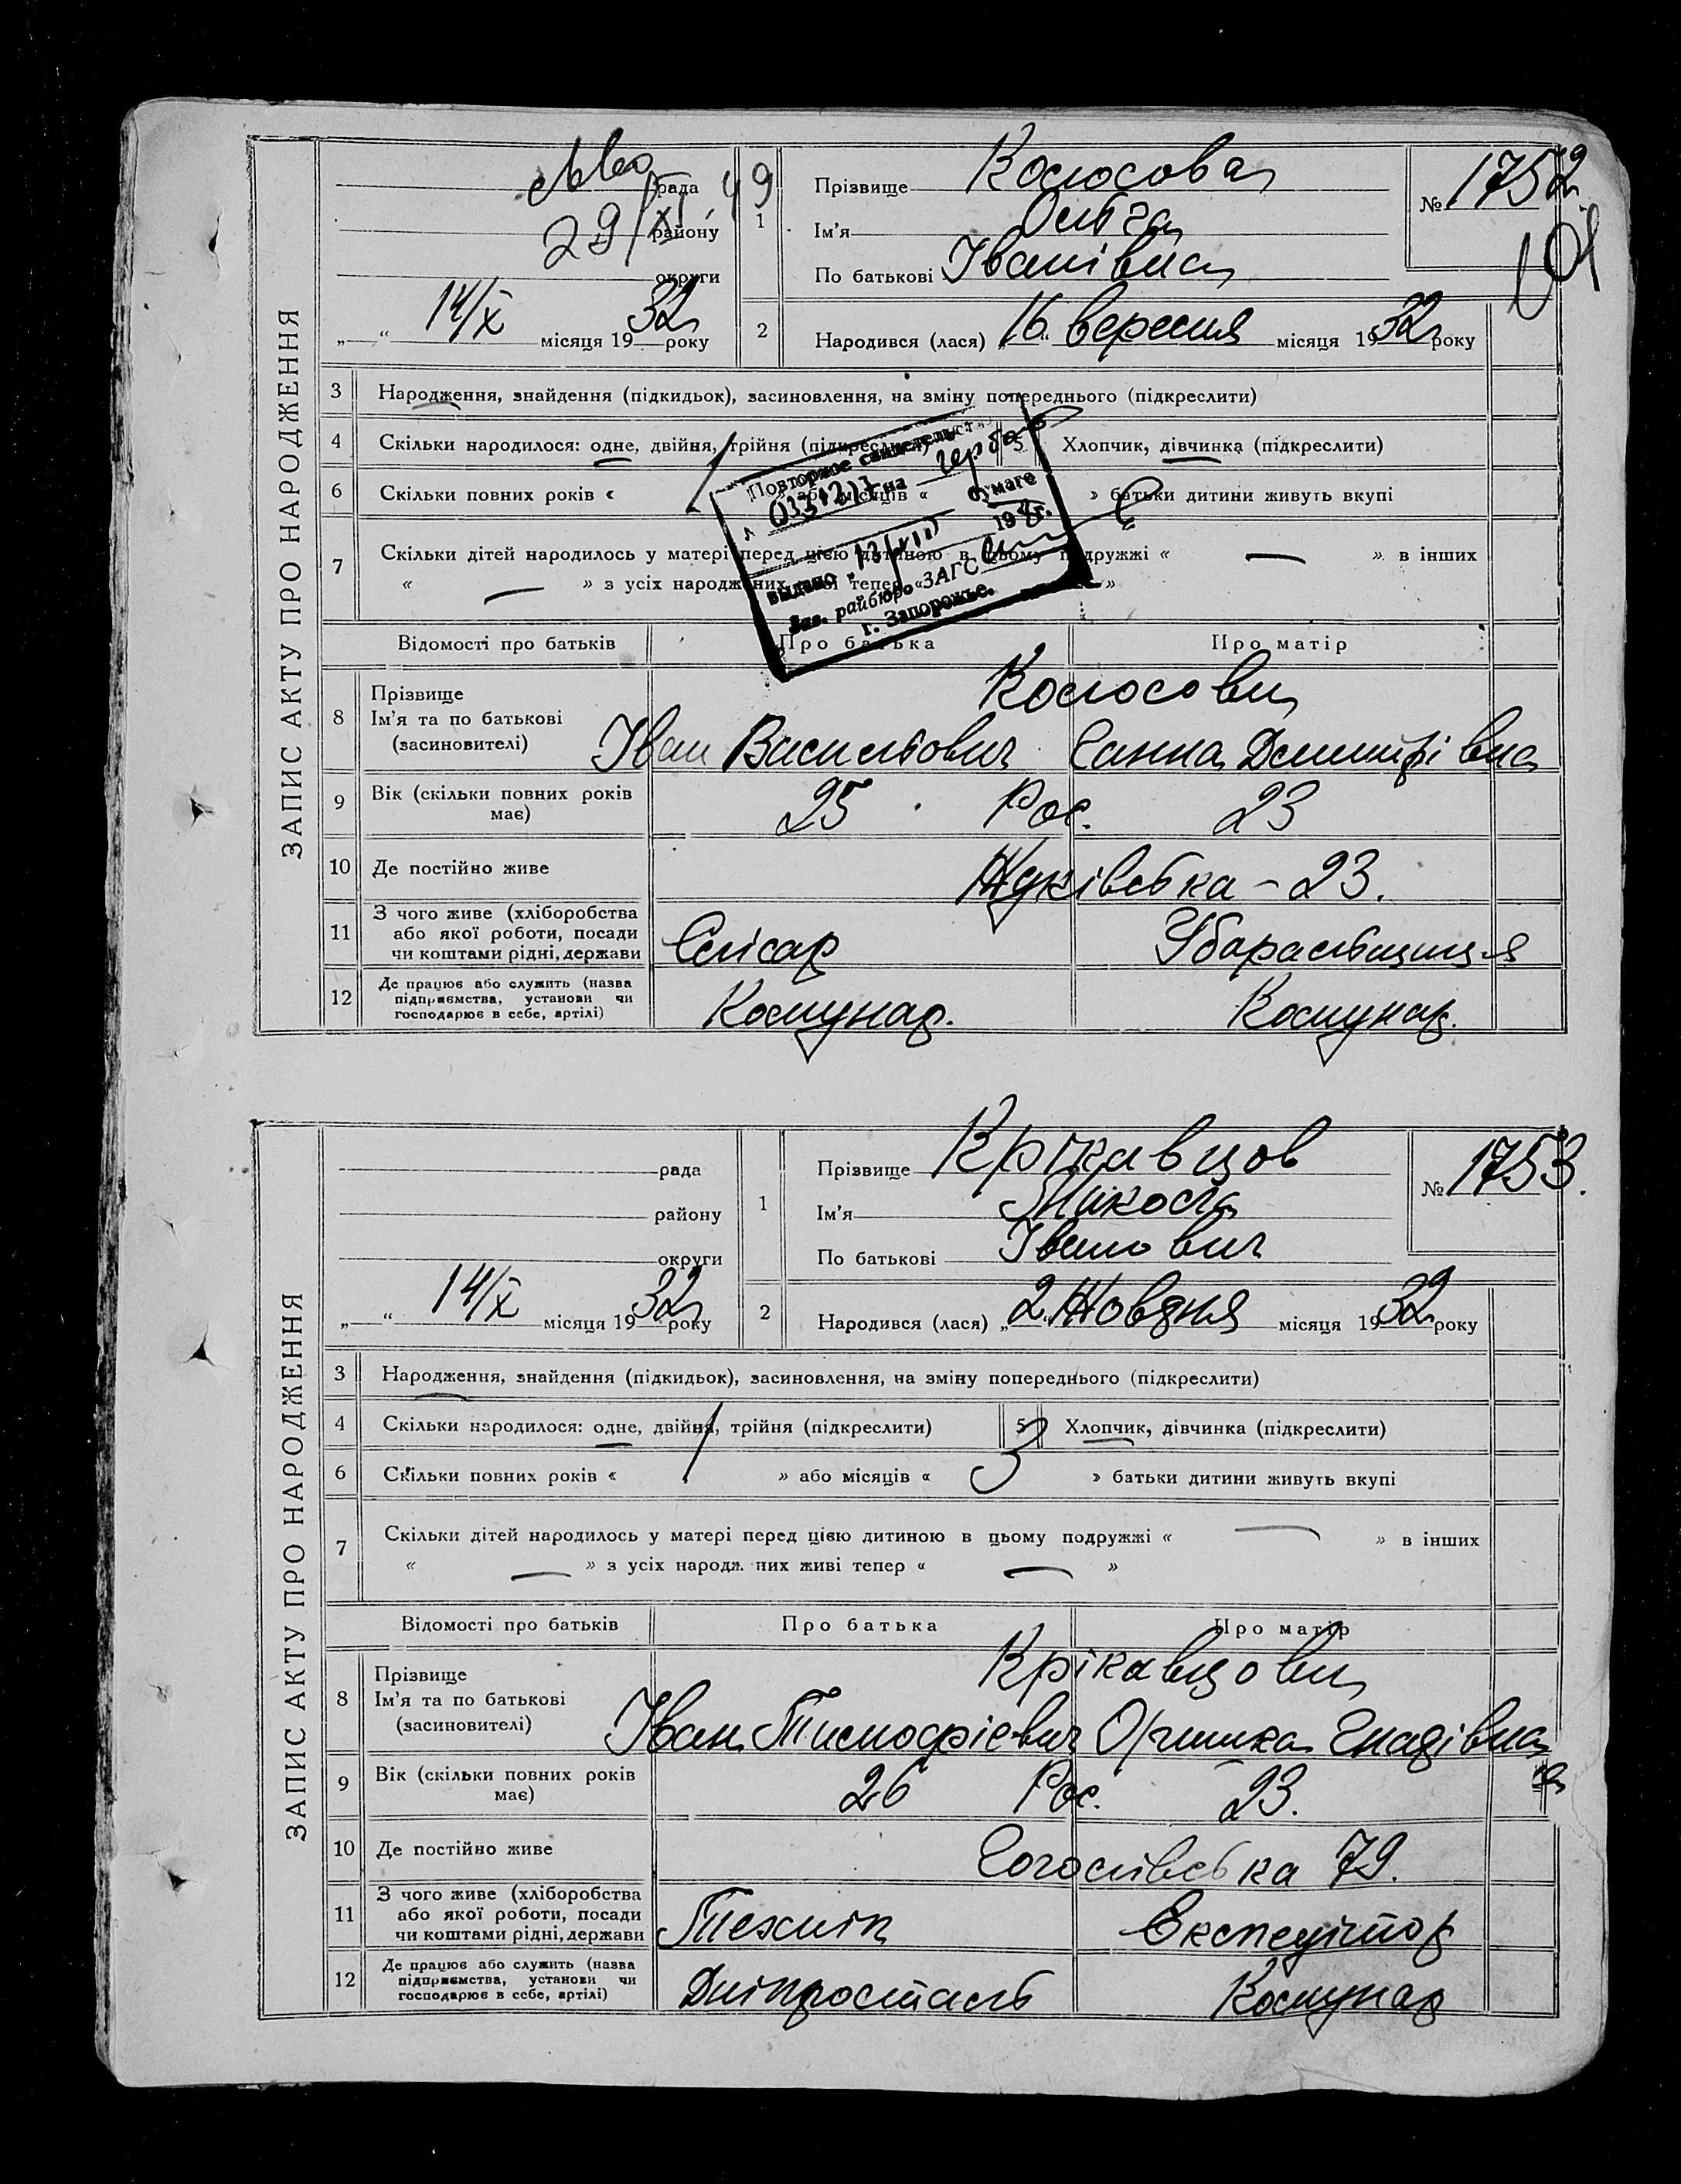 ЗАПИС АКТУ ПРО НАРОДЖЕННЯ
рада
29/XI 49
району
округи
„ “ 14/X місяця 1932 року
1 Прізвище Колосова
Ім'я Ольга
По батькові Іванівна
№ 1752
2 Народився (лася) „16“ вересня місяця 1932 року
3 Народження, знайдення (підкидьок), засиновлення, на зміну попереднього (підкреслити)
4 Скільки народилося: одне, двійня, трійня (підкреслити)
5 Хлопчик, дівчинка (підкреслити)
6 Скільки повних років « 1 » або місяців « » батьки дитини живуть вкупі
7 Скільки дітей народилось у матері перед цією дитиною в цьому подружжі « — » в інших
« — » з усіх народжених живі тепер « — »
Повторное свидетельст
на гербов
бумаге
выдано 13/VIII 19 г.
Зав. райбюро ЗАГС
г. Запорожье.
Відомості про батьків Про батька Про матір
8 Прізвище Колосови
Ім'я та по батькові
(засиновителі) Іван Васильович Ганна Дмитрівна
9 Вік (скільки повних років має) 25 Рос. 23
10 Де постійно живе Жуківська – 23.
11 З чого живе (хліборобства
або якої роботи, посади
чи коштами рідні, держави Слісар Убиральщиця
12 Де працює або служить (назва
підприємства, установи чи
господарює в себе, артілі) Комунар. Комунар.
ЗАПИС АКТУ ПРО НАРОДЖЕННЯ
рада
району
округи
„ “ 14/X місяця 1932 року
1 Прізвище Крікавцов
Ім'я Микола
По батькові Іванович
№ 1753.
2 Народився (лася) „2“ Жовдня місяця 1932 року
3 Народження, знайдення (підкидьок), засиновлення, на зміну попереднього (підкреслити)
4 Скільки народилося: одне, двійня, трійня (підкреслити)
5 Хлопчик, дівчинка (підкреслити)
6 Скільки повних років « 1 » або місяців « 3 » батьки дитини живуть вкупі
7 Скільки дітей народилось у матері перед цією дитиною в цьому подружжі « — » в інших
« — » з усіх народж. них живі тепер « — »
Відомості про батьків Про батька Про матір
8 Прізвище Крікавцови
Ім'я та по батькові
(засиновителі) Іван Тимофієвич Оришка
9 Вік (скільки повних років має) 26 Рос. 23.
10 Де постійно живе Гоголівська 79.
11 З чого живе (хліборобства
або якої роботи, посади
чи коштами рідні, держави Технік Експедітор
12 Де працює або служить (назва
підприємства, установи чи
господарює в себе, артілі) Дніпросталь Комунар